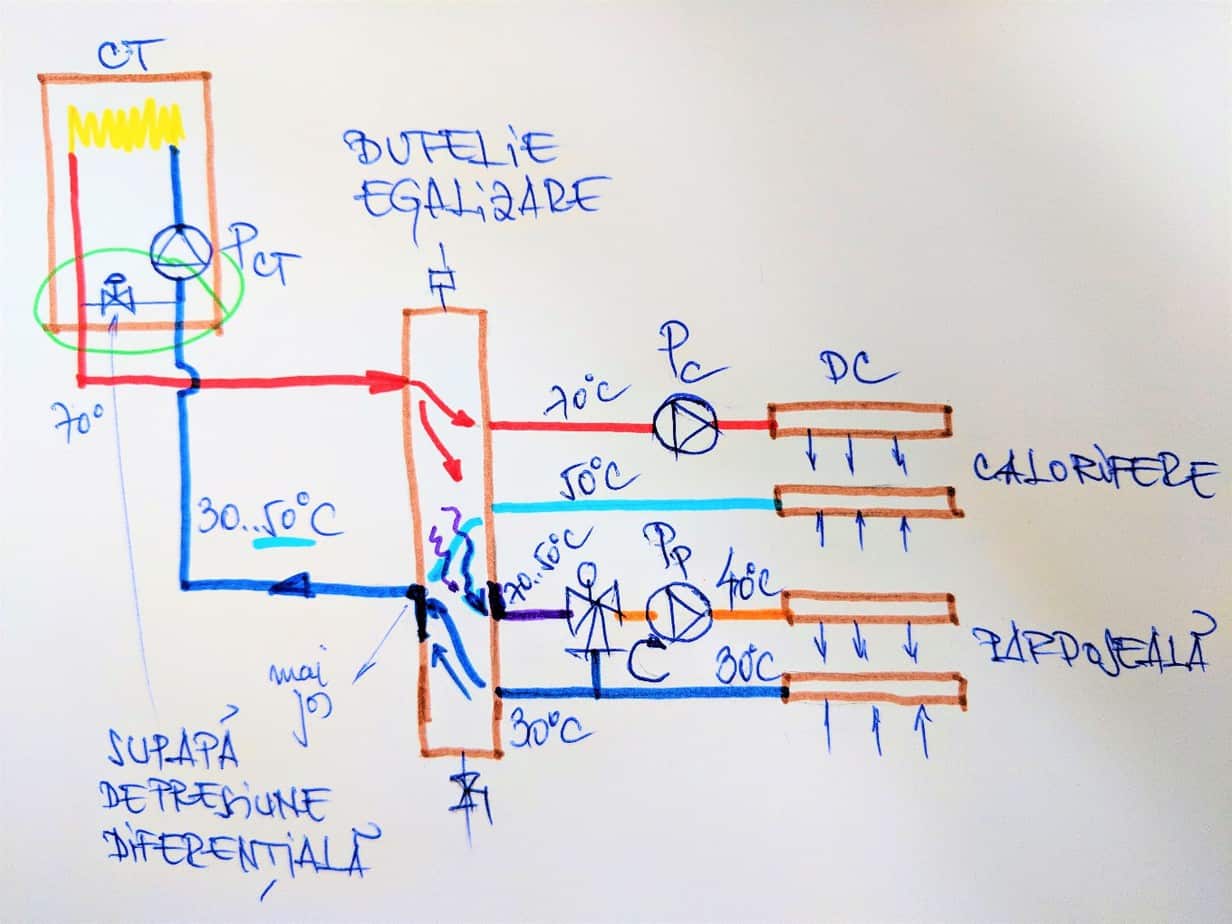 CT
BUTELIE
EGALIZARE
PCT
PC
DC
70°
70°C
CALORIFERE
50°C
30..50°C
70..50°C
PP
40°C
C
30°C
PARDOSEALĂ
mai
jos
30°C
SUPAPĂ
DE PRESIUNE
DIFERENȚIALĂ